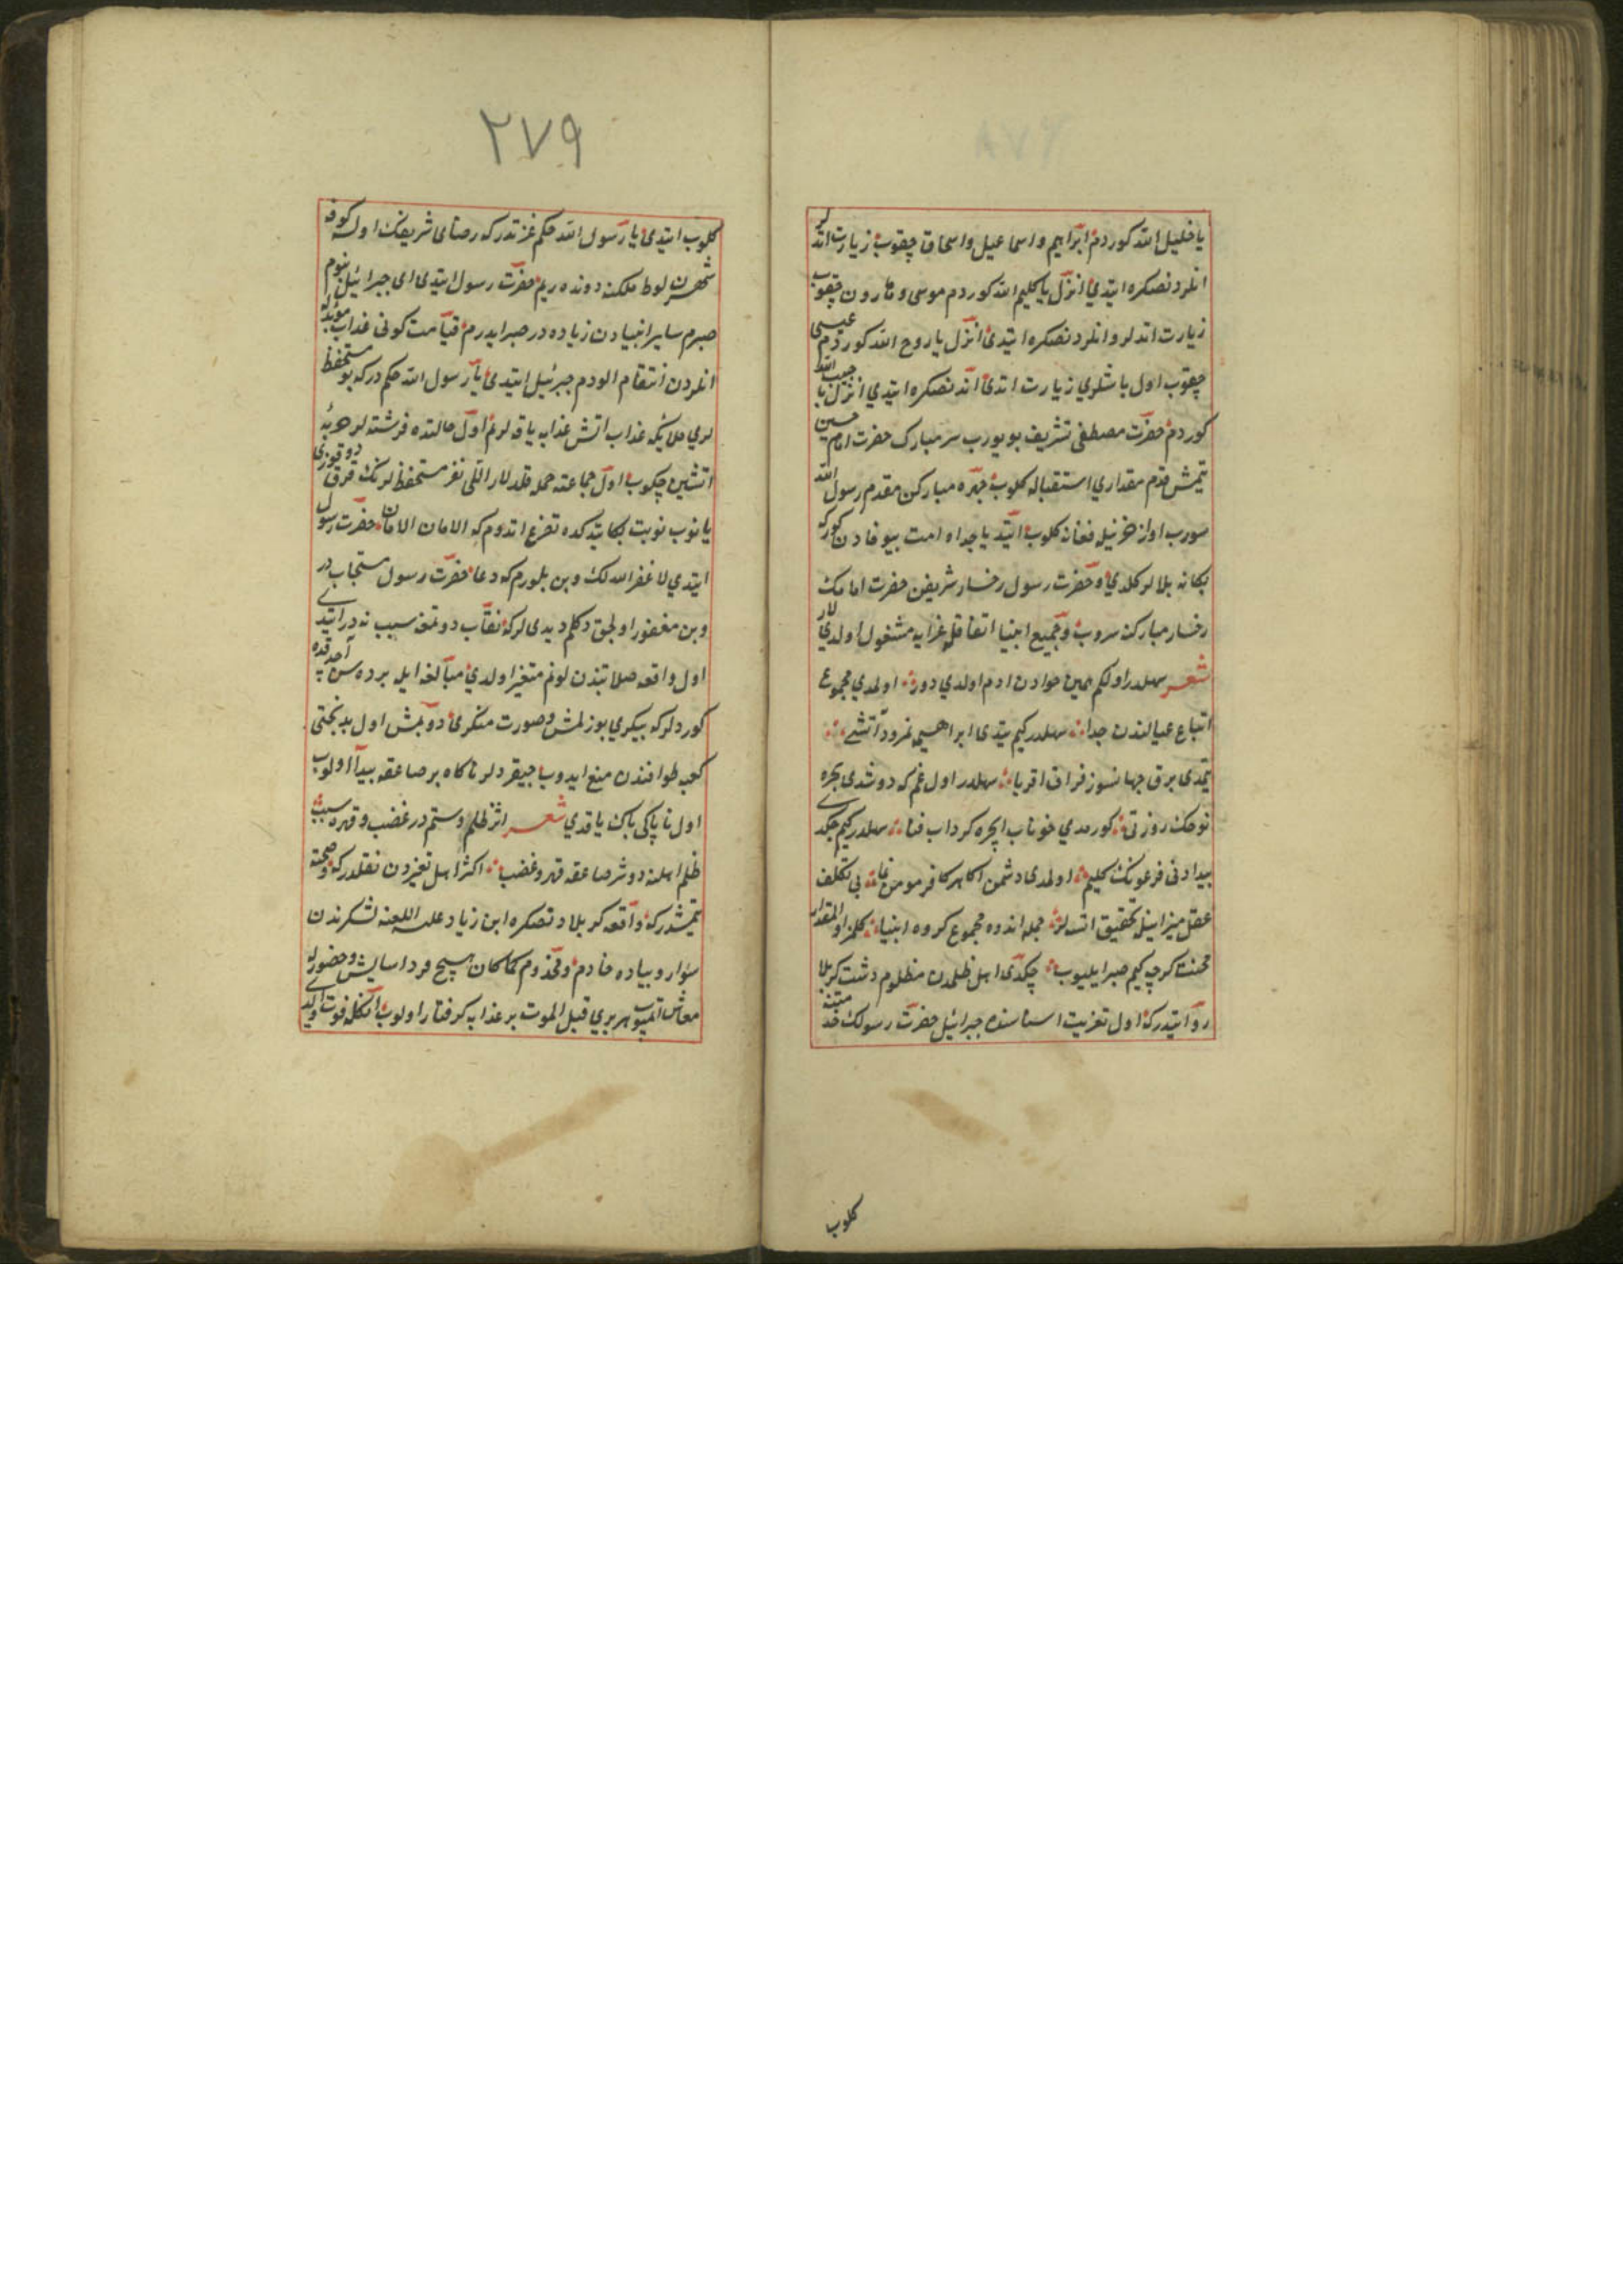 یا خلیل الله کوردم ابراهیم و اسماعیل و اسحاق چقوب زیارت اتدلر
انلردنصکره ایتدی انزل یا کلیم الله کوردم موسی و هارون چقوب
زیارت اتدلر و انلردنصکره ایتدی انزل یا روح الله کوردم عیسی
چقوب اول باشلری زیارت اتدی اندنصکره ایتدی انزل یا حبیب الله
کوردم حضرت مصطفی تشریف بویورب سر مبارک حضرت امام حسین
یتمش قدم مقداری استقباله کلوب چهره مبارکن مقدم رسول الله
سورب اواز حزنیله فغانه کلوب ایتدی یا جداه امت بیوفادن کورکه
بکا نه بلالر کلدی و حضرت رسول رخسار شریفن حضرت امامک
رخسار مبارکنه سروب و جمیع انبیا اتفاقله عزایه مشغول اولدیلار
شعر سهلدر اولکم همین حوادن ادم اولدی دور اولمدی مجموع
اتباع عیالندن جدا سهلدر کیم یتدی ابراهیمه نمرود آتشی
یتمدی برق جهانسوز فراق اقربا سهلدر اول غم که دوشدی بحره
نوحک زورقی کورمدی خوناب ایچره کرداب فنا سهلدر کیم چکدی
بیدادنی فرعونک کلیم اولمدی دشمن اکا هر کافر و مومن نما بی تکلف
عقل میزانیله تحقیق اتسه لر جمله اندوه مجموع کروه انبیا کلمز اول مقدار
محنت کرچه کیم صبر ایلیوب چکدی اهل ظلمدن مظلوم دشت کربلا
روایتدرکه اول تعزیت اسناسنده جبرائیل حضرت رسولک خدمتنه
کلوب
٢٧٩
کلوب ایتدی یا رسول الله حکم عزتدر که رضای شریفک اولسه کوفه
شهرن لوط ملکنه دوندوریم حضرت رسول ایتدی ای جبرائیل بنوم
صبرم سایر انبیادن زیاده در صبر ایدرم قیامت کونی عذاب مؤبدله
انلردن انتقام الورم جبرئیل ایتدی یا رسول الله حکم در که بو مستحفظ
لری ملایکه عذاب اتش عذابه یاقه لر اول حالتده فرشته لر حربه
اتشین چکوب اول جماعته حمله قلدلار اللی نفر مستحفظلرنک قرق دوقوزی
یانوب نوبت بکا یتدکده تضرع اتدوم که الامان الامان حضرت رسول
ایتدی لا غفر الله لک و بن بلورم که دعا حضرت رسول مستجابدر
و بن مغفور اولجق دکلم دیدی لر که نقاب دوتمغه سبب نه در ایتدی
اول واقعه صلابتندن لونم متغیر اولدی مبالغه ایله پرده سن
کوردلر که پیکری بوزلمش و صورت منکری دونمش اول بدبختی
کعبه طوافندن منع ایدوب چیقردلر ناکاه بر صاعقه پیدا اولوب
اول ناپاکی پاک یاقدی شعر اثر ظلم و ستم در غضب و قهره سبب
ظلم اهلنه دوشر صاعقه قهر و غضب اکثر اهل تعزیدن نقلدر که صحته
یتمشدر که واقعه کربلادنصکره ابن زیاد علیه اللعنه لشکرندن
سوار و پیاده خادم و مخدوم کماکان هیچ فرد اسایش و حضورله
معاش اتمیوب هر بری قبل الموت بر عذابه کرفتار اولوب انکله فوت اولدی